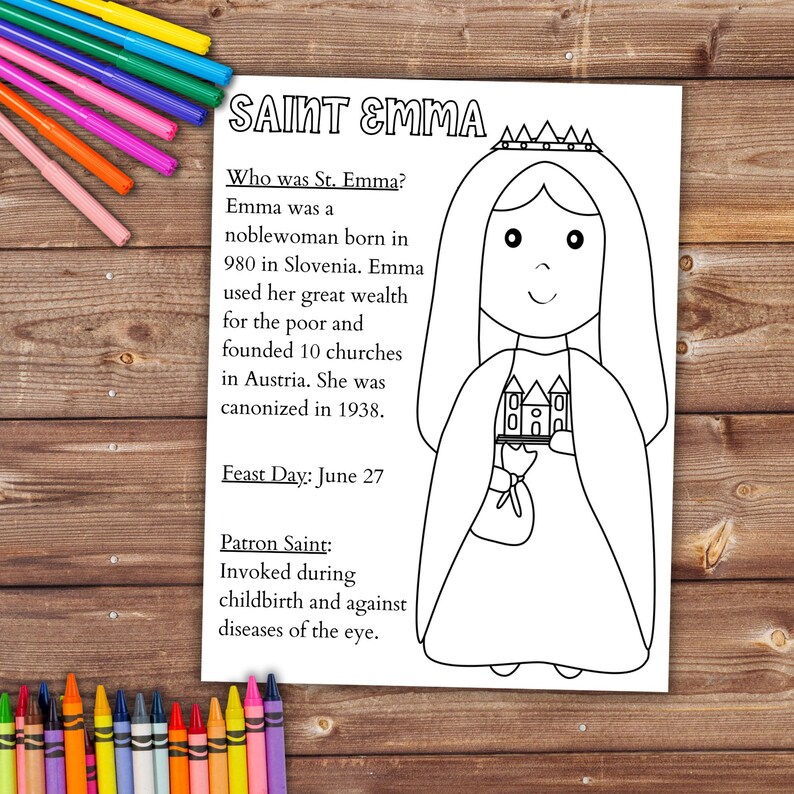 SAINT EMMA
Who was St. Emma?
Emma was a
noblewoman born in
980 in Slovenia. Emma
used her great wealth
for the poor and
founded 10 churches
in Austria. She was
canonized in 1938.
Feast Day: June 27
Patron Saint:
Invoked during
childbirth and against
diseases of the eye.